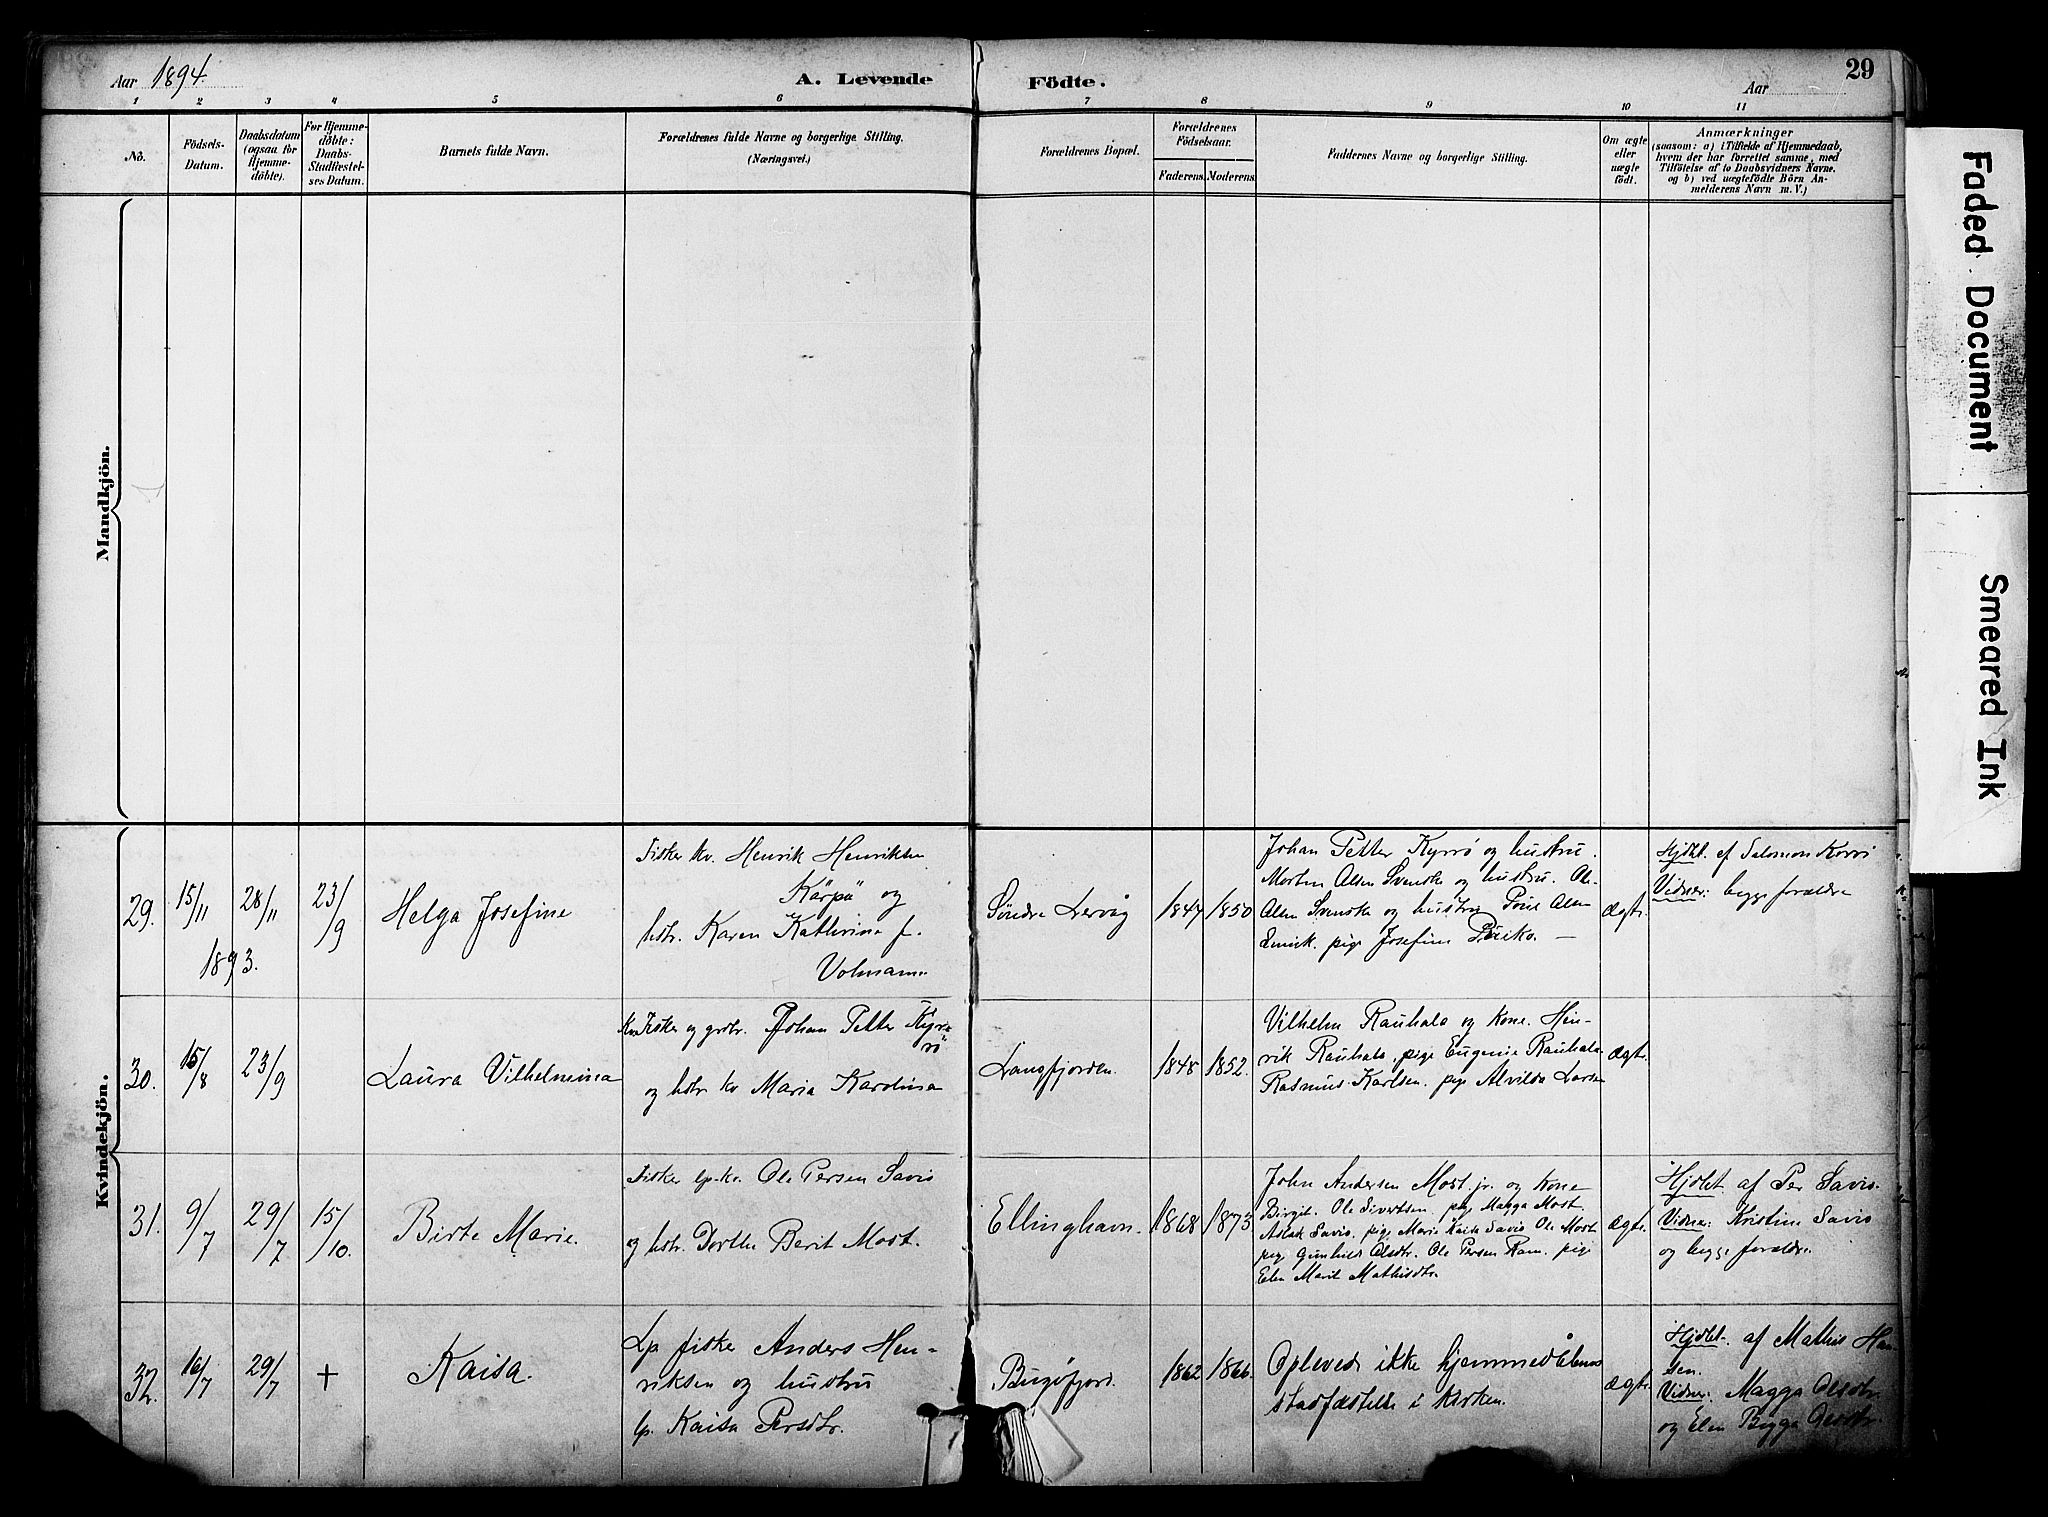 Aar 1894.
A. Levende Födte.
Aar
29
1 2 3 4 5 6 7 8 9 10 11
No.
Födsels-
Datum.
Daabsdatum
(ogsaa for
Hjemme-
döbte).
For Hjemme-
döbte:
Daabs-
Stadfæstel-
ses Datum.
Barnets fulde Navn.
Forældrenes fulde Navne og borgerlige Stilling.
(Næringsvei.)
Forældrenes Bopæl.
Forældrenes
Födselsaar.
Faderens. Moderens.
Faddernes Navne og borgerlige Stilling.
Om ægte
eller
uægte
födt.
Anmærkninger
(saasom: a) i Tilfælde af Hjemmedaab,
hvem der har forrettet samme, med
Tilföielse af to Daabsvidners Navne,
og b) ved uægtefödte Börn An-
melderens Navn m. V.)
Mandkjön.
Kvindekjön.
29.
15/11
1893.
28/11
23/9
Helga Josefine
Fisker kv. Henrik Henriksen
Kärpä og
hstr. Karen Kathrine f.
Volmann
Söndre Lervåg
1847
1850
Johan Petter Kyrrö og hustru.
Morten Olsen Svenske og hustru. Ole
Olsen Svenske og hustru Poul Olsen
pige Josefine
ægte
Hjdbt. af Salomon Korvi
Vidner: begge forældre
30.
15/8
23/9
Laura Vilhelmina
kv. Fisker og grdbr. Johan Petter Kyr-
rö
og hstr. kv Maria Karolina
Langfjorden.
1848
1852.
Vilhelm Rauhala og kone. Hen-
rik Rauhala, pige Eugenie Rauhala
Rasmus Karlsen. pige Alvilda Larsen
ægte
31.
9/7
29/7
15/10.
Birte Marie.
Fisker lp.kv. Ole Persen Savio
og hstr. Dorthe Berit Most.
Ellinghavn.
1868
1873
John Andersen Most jr. og kone
Birgit. Ole Sivertsen. pige Magga Most.
Aslak Savio. pige Marie Kaisa Savio Ole Most
pige Gunhild Olsdtr. Ole Persen Ram. pige
Elen Marit Mathisdtr.
ægte
Hjdbt. af Per Savio.
Vidner: Kristine Savio
og begge forældre
32.
16/7
29/7
+
Kaisa.
Lp fisker Anders Hen-
riksen og hustru
lp. Kaisa Persdtr.
Bugöfjord.
1862
1866.
Oplevede ikke hjemmedåbens
stadfæstelse i kirken.
ægte
Hjdbt. af Mathis Han-
sen.
Vidner: Magga Olsdtr.
og Elen Bigga Olsdtr.
Faded Document
Smeared Ink